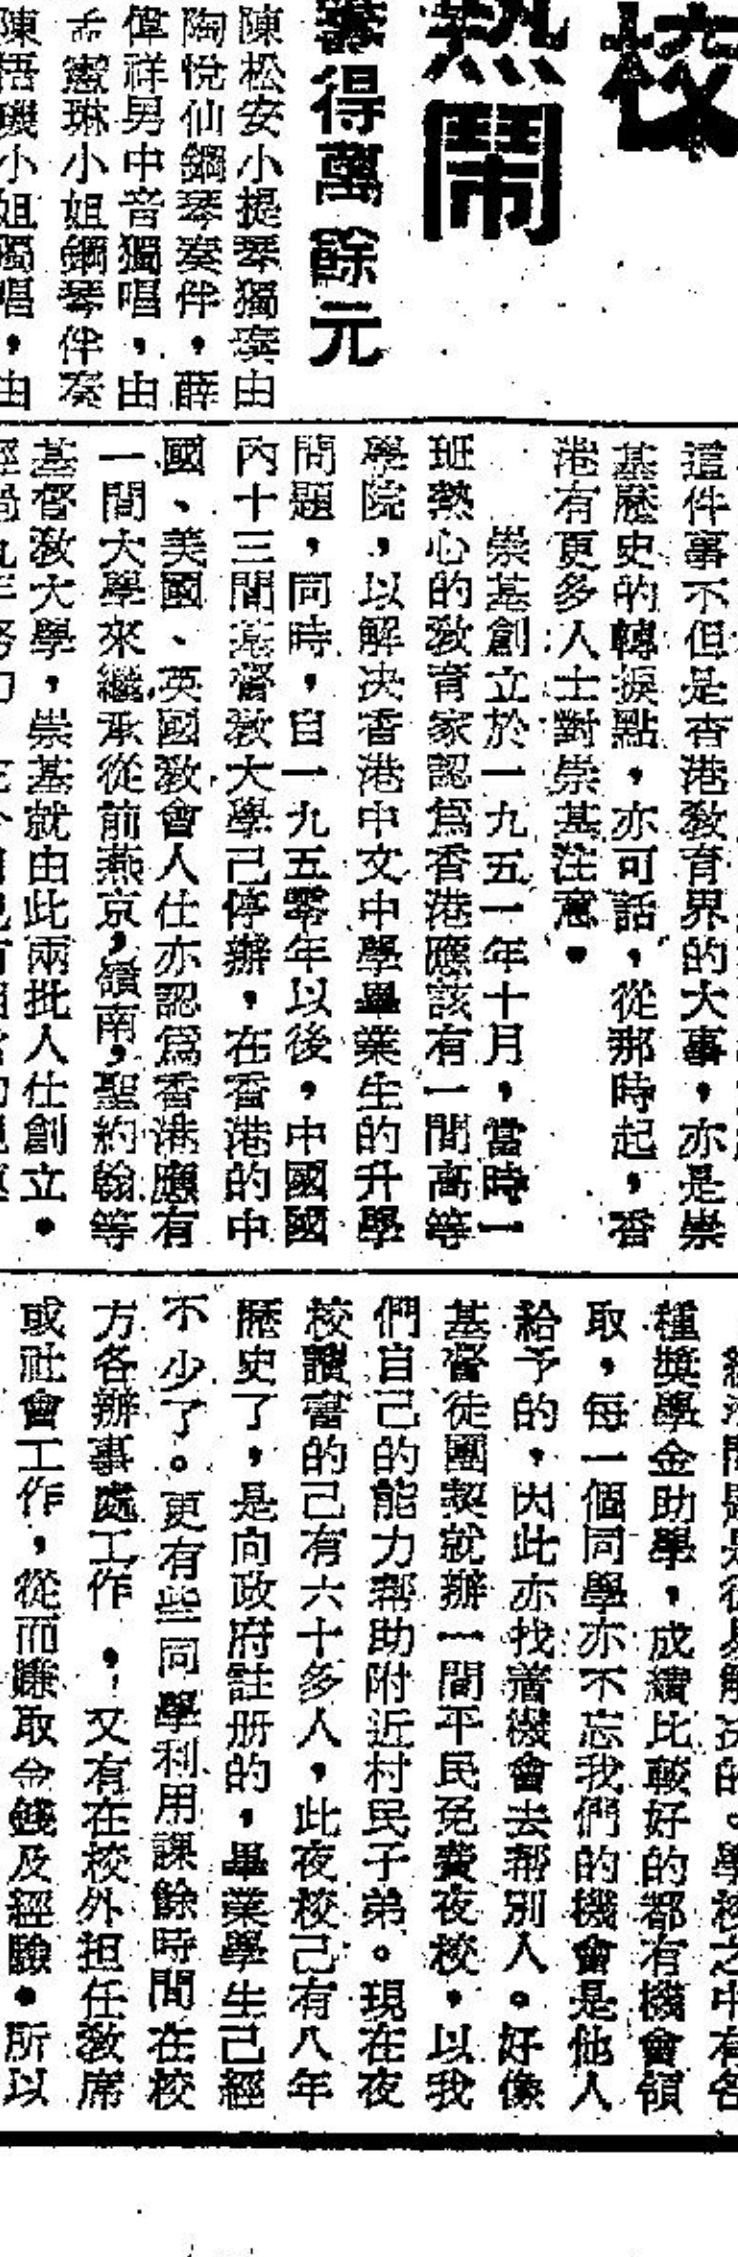 校
熱鬧
得萬餘元
陳松安小提琴獨奏由
陶悅仙鋼琴奏伴，薛
偉祥男中音獨唱，由
孟憲琳小姐鋼琴伴奏
陳梧磯小姐獨唱，由
這件事不但是香港敎育界的大事，亦是崇
基歷史的轉捩點，亦可話，從那時起，香
港有更多人士對崇基注意。
崇基創立於一九五一年十月，當時一
班熱心的敎育家認爲香港應該有一間高等
學院，以解决香港中文中學畢業生的升學
問題，同時，自一九五零年以後，中國國
內十三間基督敎大學己停辦，在香港的中
國、美國、英國敎會人仕亦認爲香港應有
一間大學來繼承從前燕京，嶺南，聖約翰等
基督敎大學，崇基就由此兩批人仕創立。
種獎學金助學，成績比較好的都有機會領
取，每一個同學亦不忘我們的機會是他人
給予的，因此亦找着機會去帮別人。好像
基督徒團契就辦一間平民免費夜校，以我
們自己的能力幫助附近村民子弟。現在夜
校讀書的己有六十多人，此夜校己有八年
歷史了，是向政府註册的，畢業學生己經
不少了。更有些同學利用課餘時間在校
方各辦事處工作，！又有在校外担任敎席
或社會工作，從而賺取金錢及經驗。所以